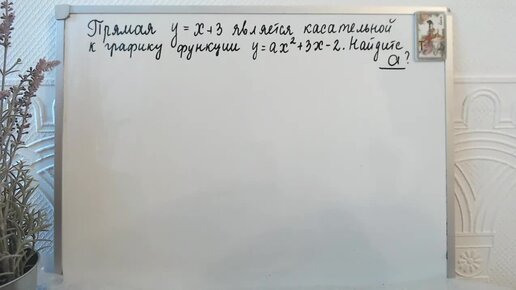 Прямая y = x+3 является касательной
к графику функции y=ax²+3x-2. Найдите
a?